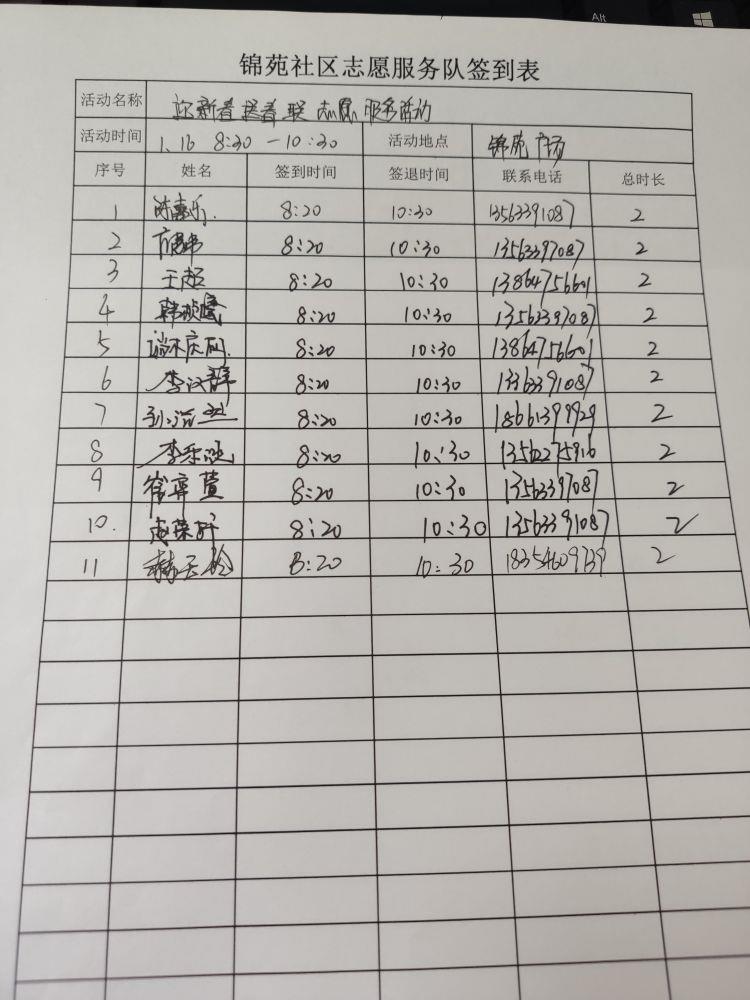 Alt
锦苑社区志愿服务队签到表
活动名称 迎新春送春联志愿服务活动
活动时间 1.16 8:30-10:30 活动地点 锦苑广场
序号 姓名 签到时间 签退时间 联系电话 总时长
1 8:20 10:30 13563391087 2
2 8:20 10:30 13563397087 2
3 王超 8:20 10:30 13864756601 2
4 8:20 10:30 2
5 8:20 10:30 13864756601 2
6 李汉辞 8:20 10:30 2
7 8:20 10:30 18661399929 2
8 李乐涵 8:20 10:30 13562275916 2
9 8:20 10:30 13563397087 2
10. 8:20 10:30 13563391087 2
11 8:20 10:30 18354609739 2